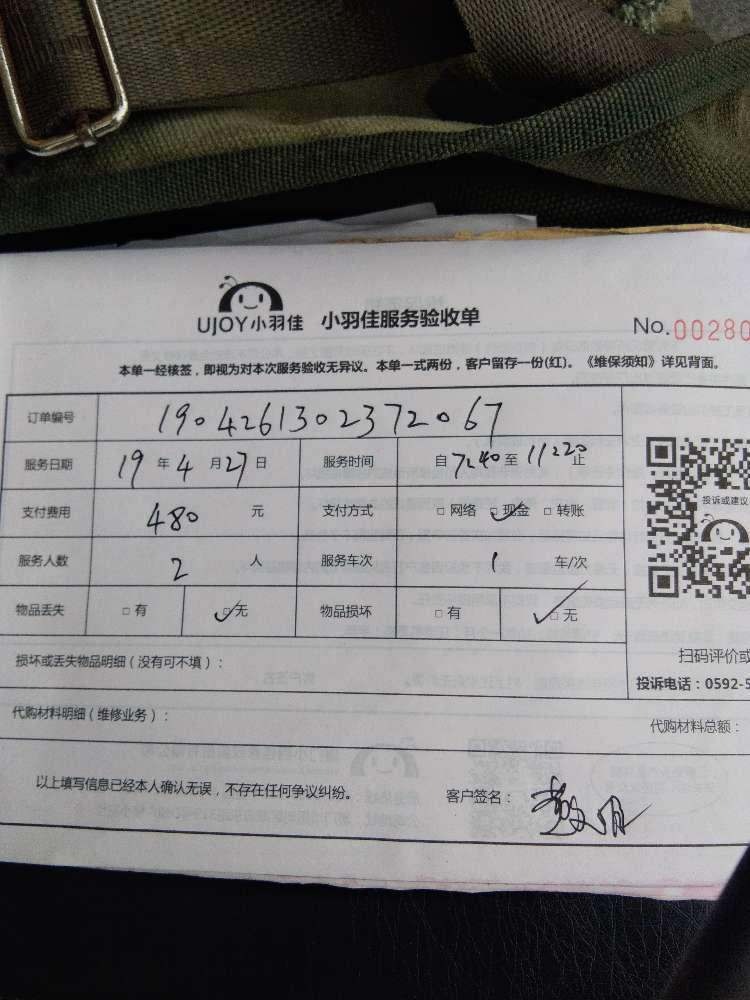 UJOY小羽佳 小羽佳服务验收单 No.00280
本单一经核签，即视为对本次服务验收无异议。本单一式两份，客户留存一份(红)。《维保须知》详见背面。
订单编号 1904261302372067
服务日期 19 年 4 月 27 日 服务时间 自 7:40 至 11:20 止
支付费用 480 元 支付方式 □ 网络 □ 现金 □ 转账
投诉或建议
服务人数 2 人 服务车次 1 车/次
物品丢失 □ 有 □ 无 物品损坏 □ 有 □ 无
扫码评价或
损坏或丢失物品明细（没有可不填）：
投诉电话：0592-5
代购材料明细（维修业务）：
代购材料总额：
以上填写信息已经本人确认无误，不存在任何争议纠纷。 客户签名：